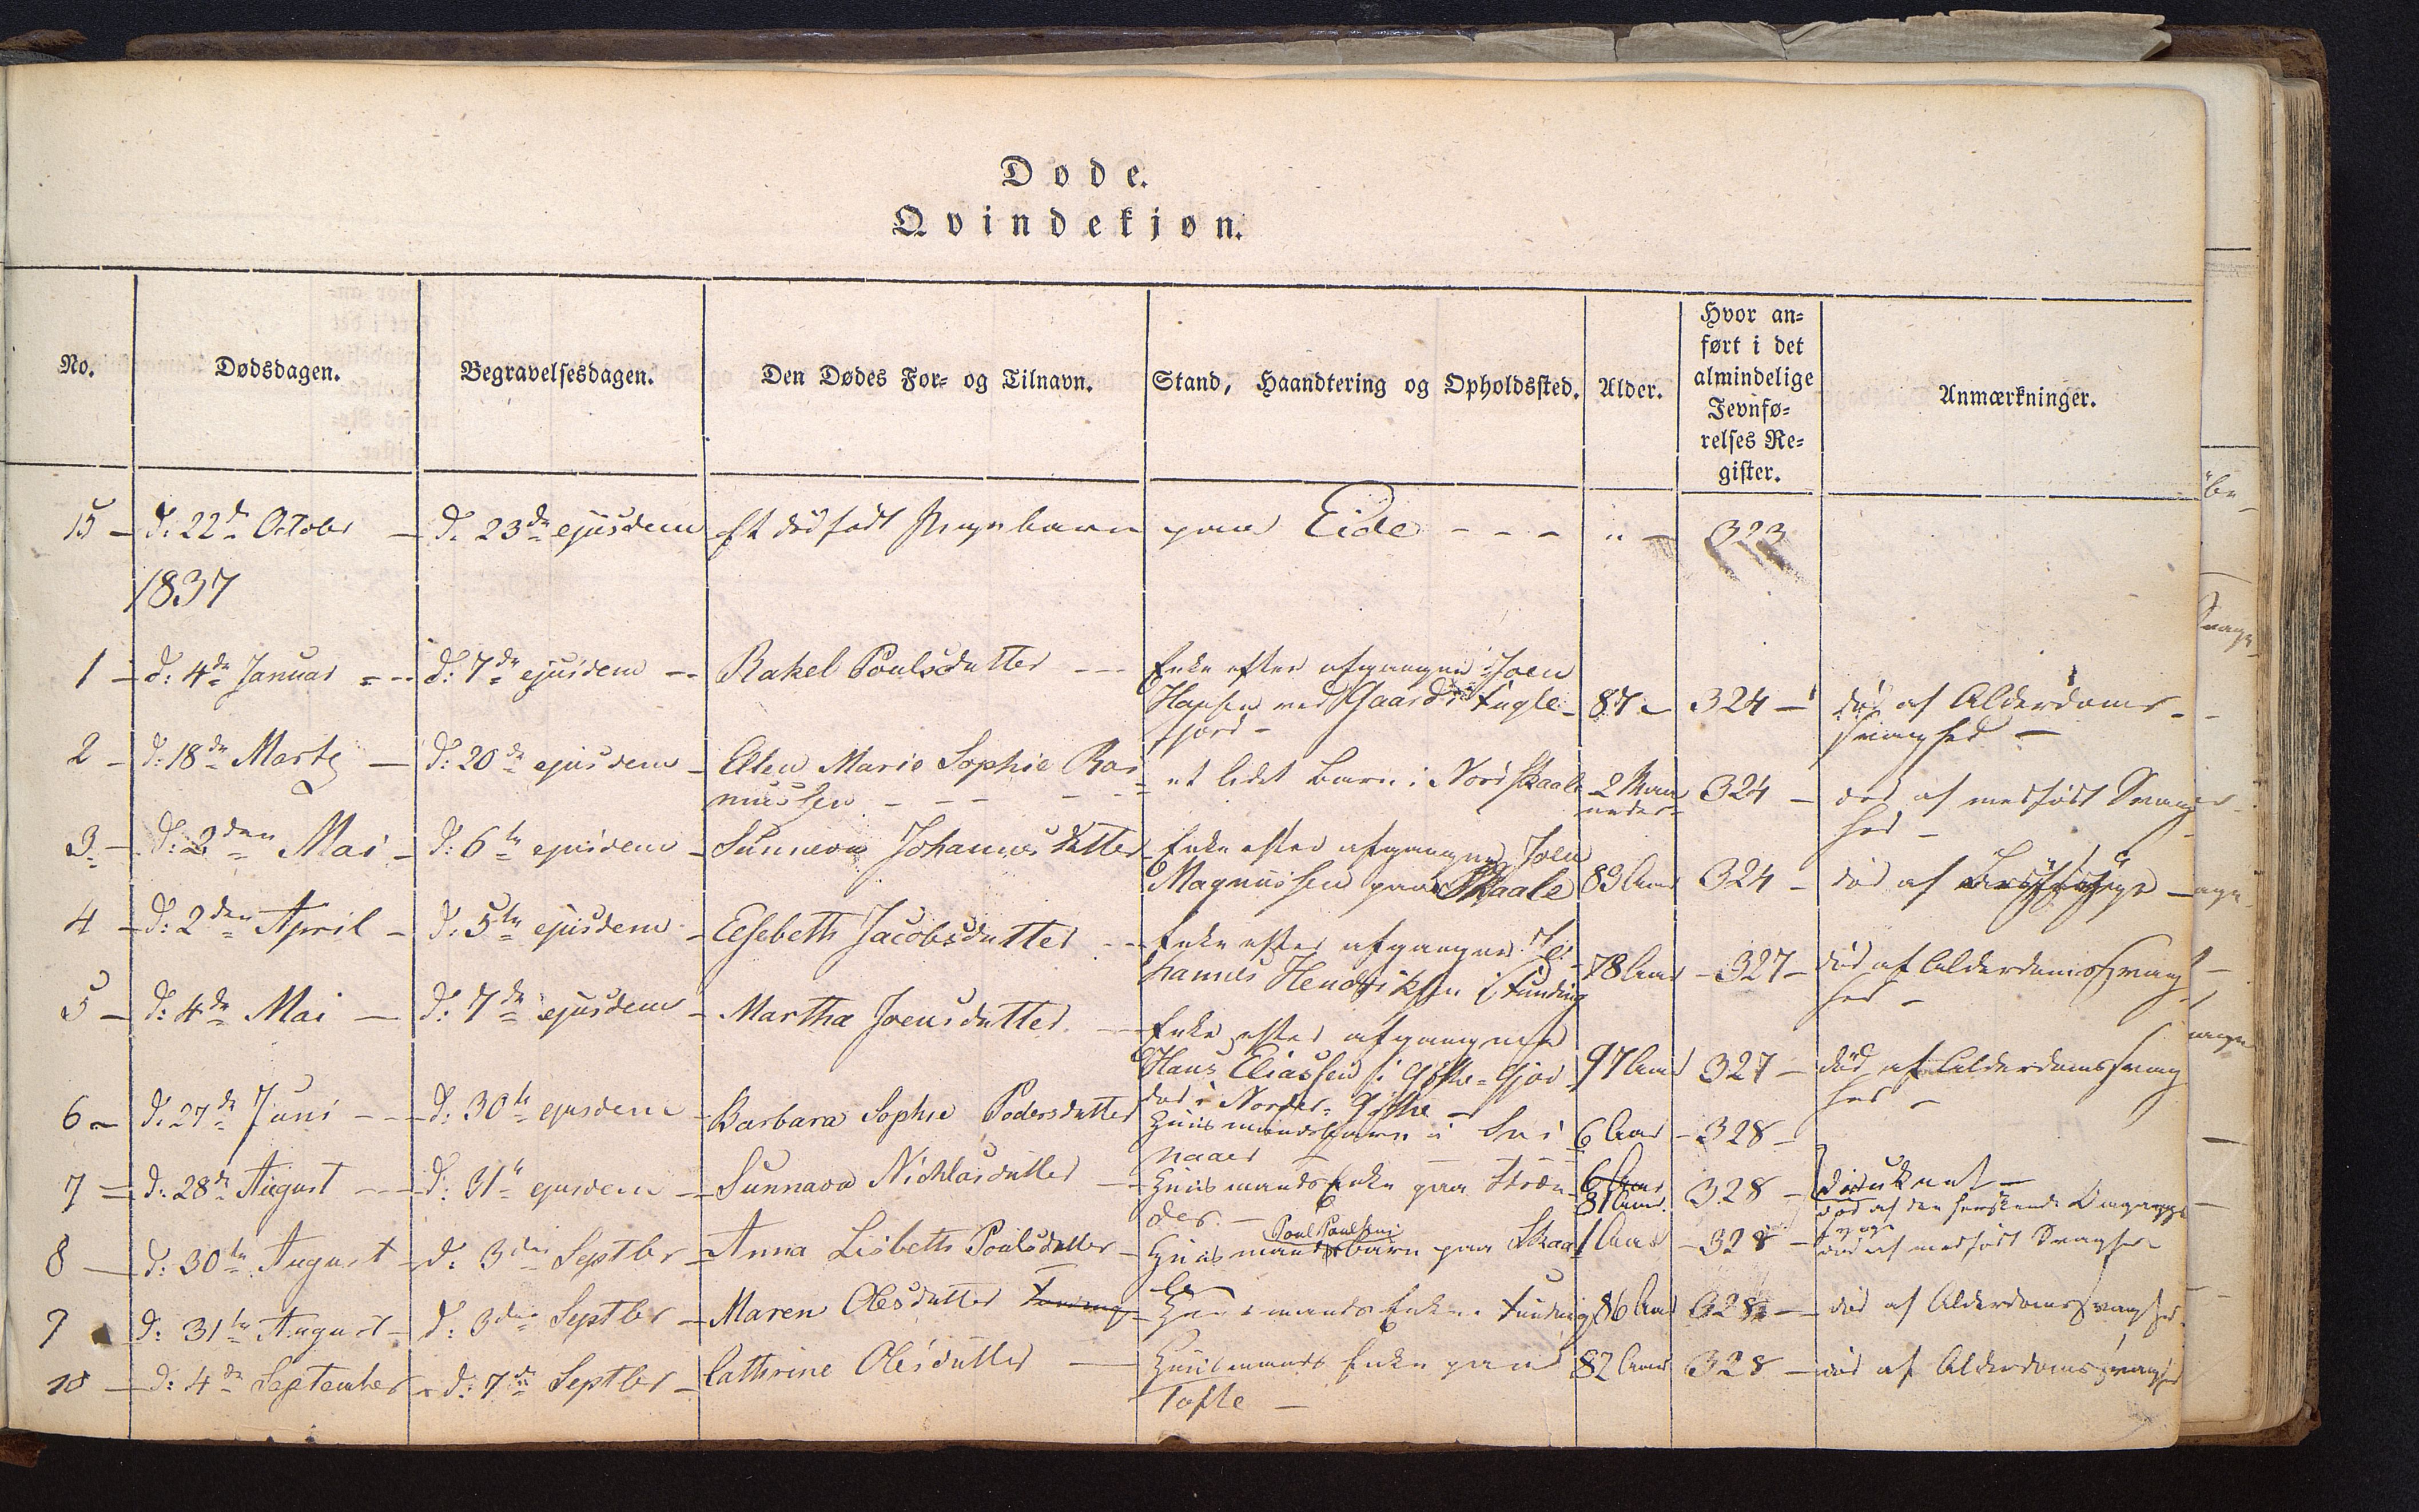 Døde.
Qvindekjøn.
No. Dødsdagen. Begravelsesdagen. Den Dødes For- og Tilnavn. Stand, Haandtering og Opholdssted. Alder. Hvor an=
ført i det
almindelige
Jevnfø=
relses Re=
gister. Anmærkninger.
15 – d: 22d October – d: 23de ejusdem Et død født Pigebarn paa Eide – – – " – 323
1837
1 – d: 4de Januar – d: 7de ejusdem – Rakel Poulsdatter – Enke efter afgangne Joen
Hansen ved Gaard i Fugle- 87 – 324 – død af Alderdoms-
fjord – svaghed –
2 – d: 18de Marts – d: 20de ejusdem – Ellen Marie Sophie Ras
mussen – – – et lidet Barn i Nordskaale 2 Maa
neder 324 – død af medfødt Svag
hed –
3 – d: 2den Mai – d: 6te ejusdem – Sunneva Johannesdatter – Enke efter afgangne Joen
Magnussen paa Skaale 83 Aar 324 – død af Brystsyge –
4 – d: 2den April – d: 5te ejusdem – Elsebeth Jacobsdatter – Enke efter afgangne Jo
hannes Hendriksen i Funding 78 Aar – 327 – død af Alderdomssvag
hed –
5 – d: 4de Mai – d: 7de ejusdem – Martha Joensdatter – Enke efter afgangne
Hans Eliassen i Gjøthe-Gjov 97 Aar 327 – død af Alderdomssvag
hed –
6 – d: 27de Juni – d: 30te ejusdem – Barbara Sophie Pedersdatter
Huusmandsbarn i Sni 6 Aar – 328 –
naaer
7 – d: 28de August – d: 31te ejusdem – Sunnava Nichlasdatter – Huusmands Enke paa Stræn 6 Aar
81 Aar. 328 – druknet –
der. – død af den herskende Omgangs
syge
8 – d: 30te August – d: 3die Septbr – Anna Lisbeth Poulsdatter – Poul Poulsens
Huusmandsbarn paa Skaa 1 Aar – 328 – død af medfødt Svaghed
le
9 – d: 31te August – d: 3die Septbr – Maren Olesdatter Funding – Huusmands Enke i Funding 86 Aar 328 – død af Alderdomssvaghed
10 – d: 4de September – d: 7de Septbr – Cathrine Olesdatter – Huusmands Enke paa 82 Aar 328 – død af Alderdomssvaghed
Tofte –